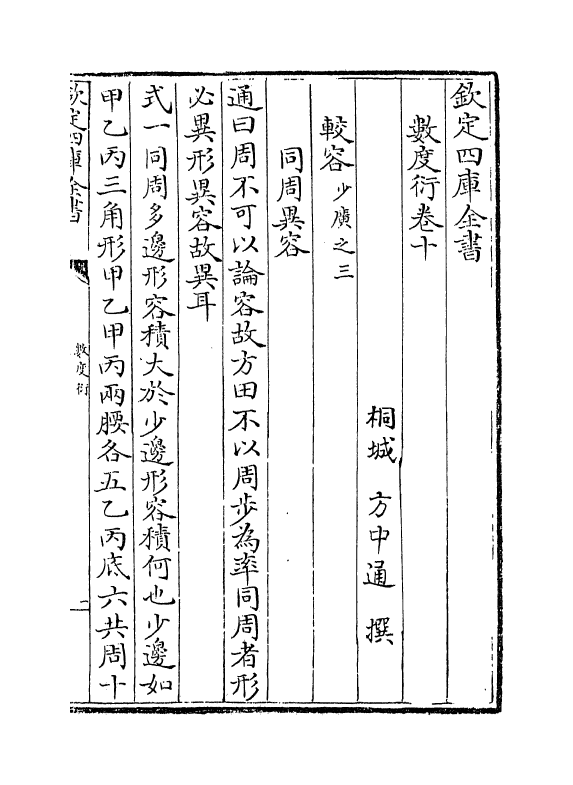 欽定四庫全書
數度衍卷十
桐城 方中通 撰
較容少廣之三
同周異容
通曰周不可以論容故方田不以周步為率同周者形
必異形異容故異耳
式一同周多邊形容積大於少邊形容積何也少邊如
甲乙丙三角形甲乙甲丙兩腰各五乙丙底六共周十
欽定四庫全書
數度衍
一